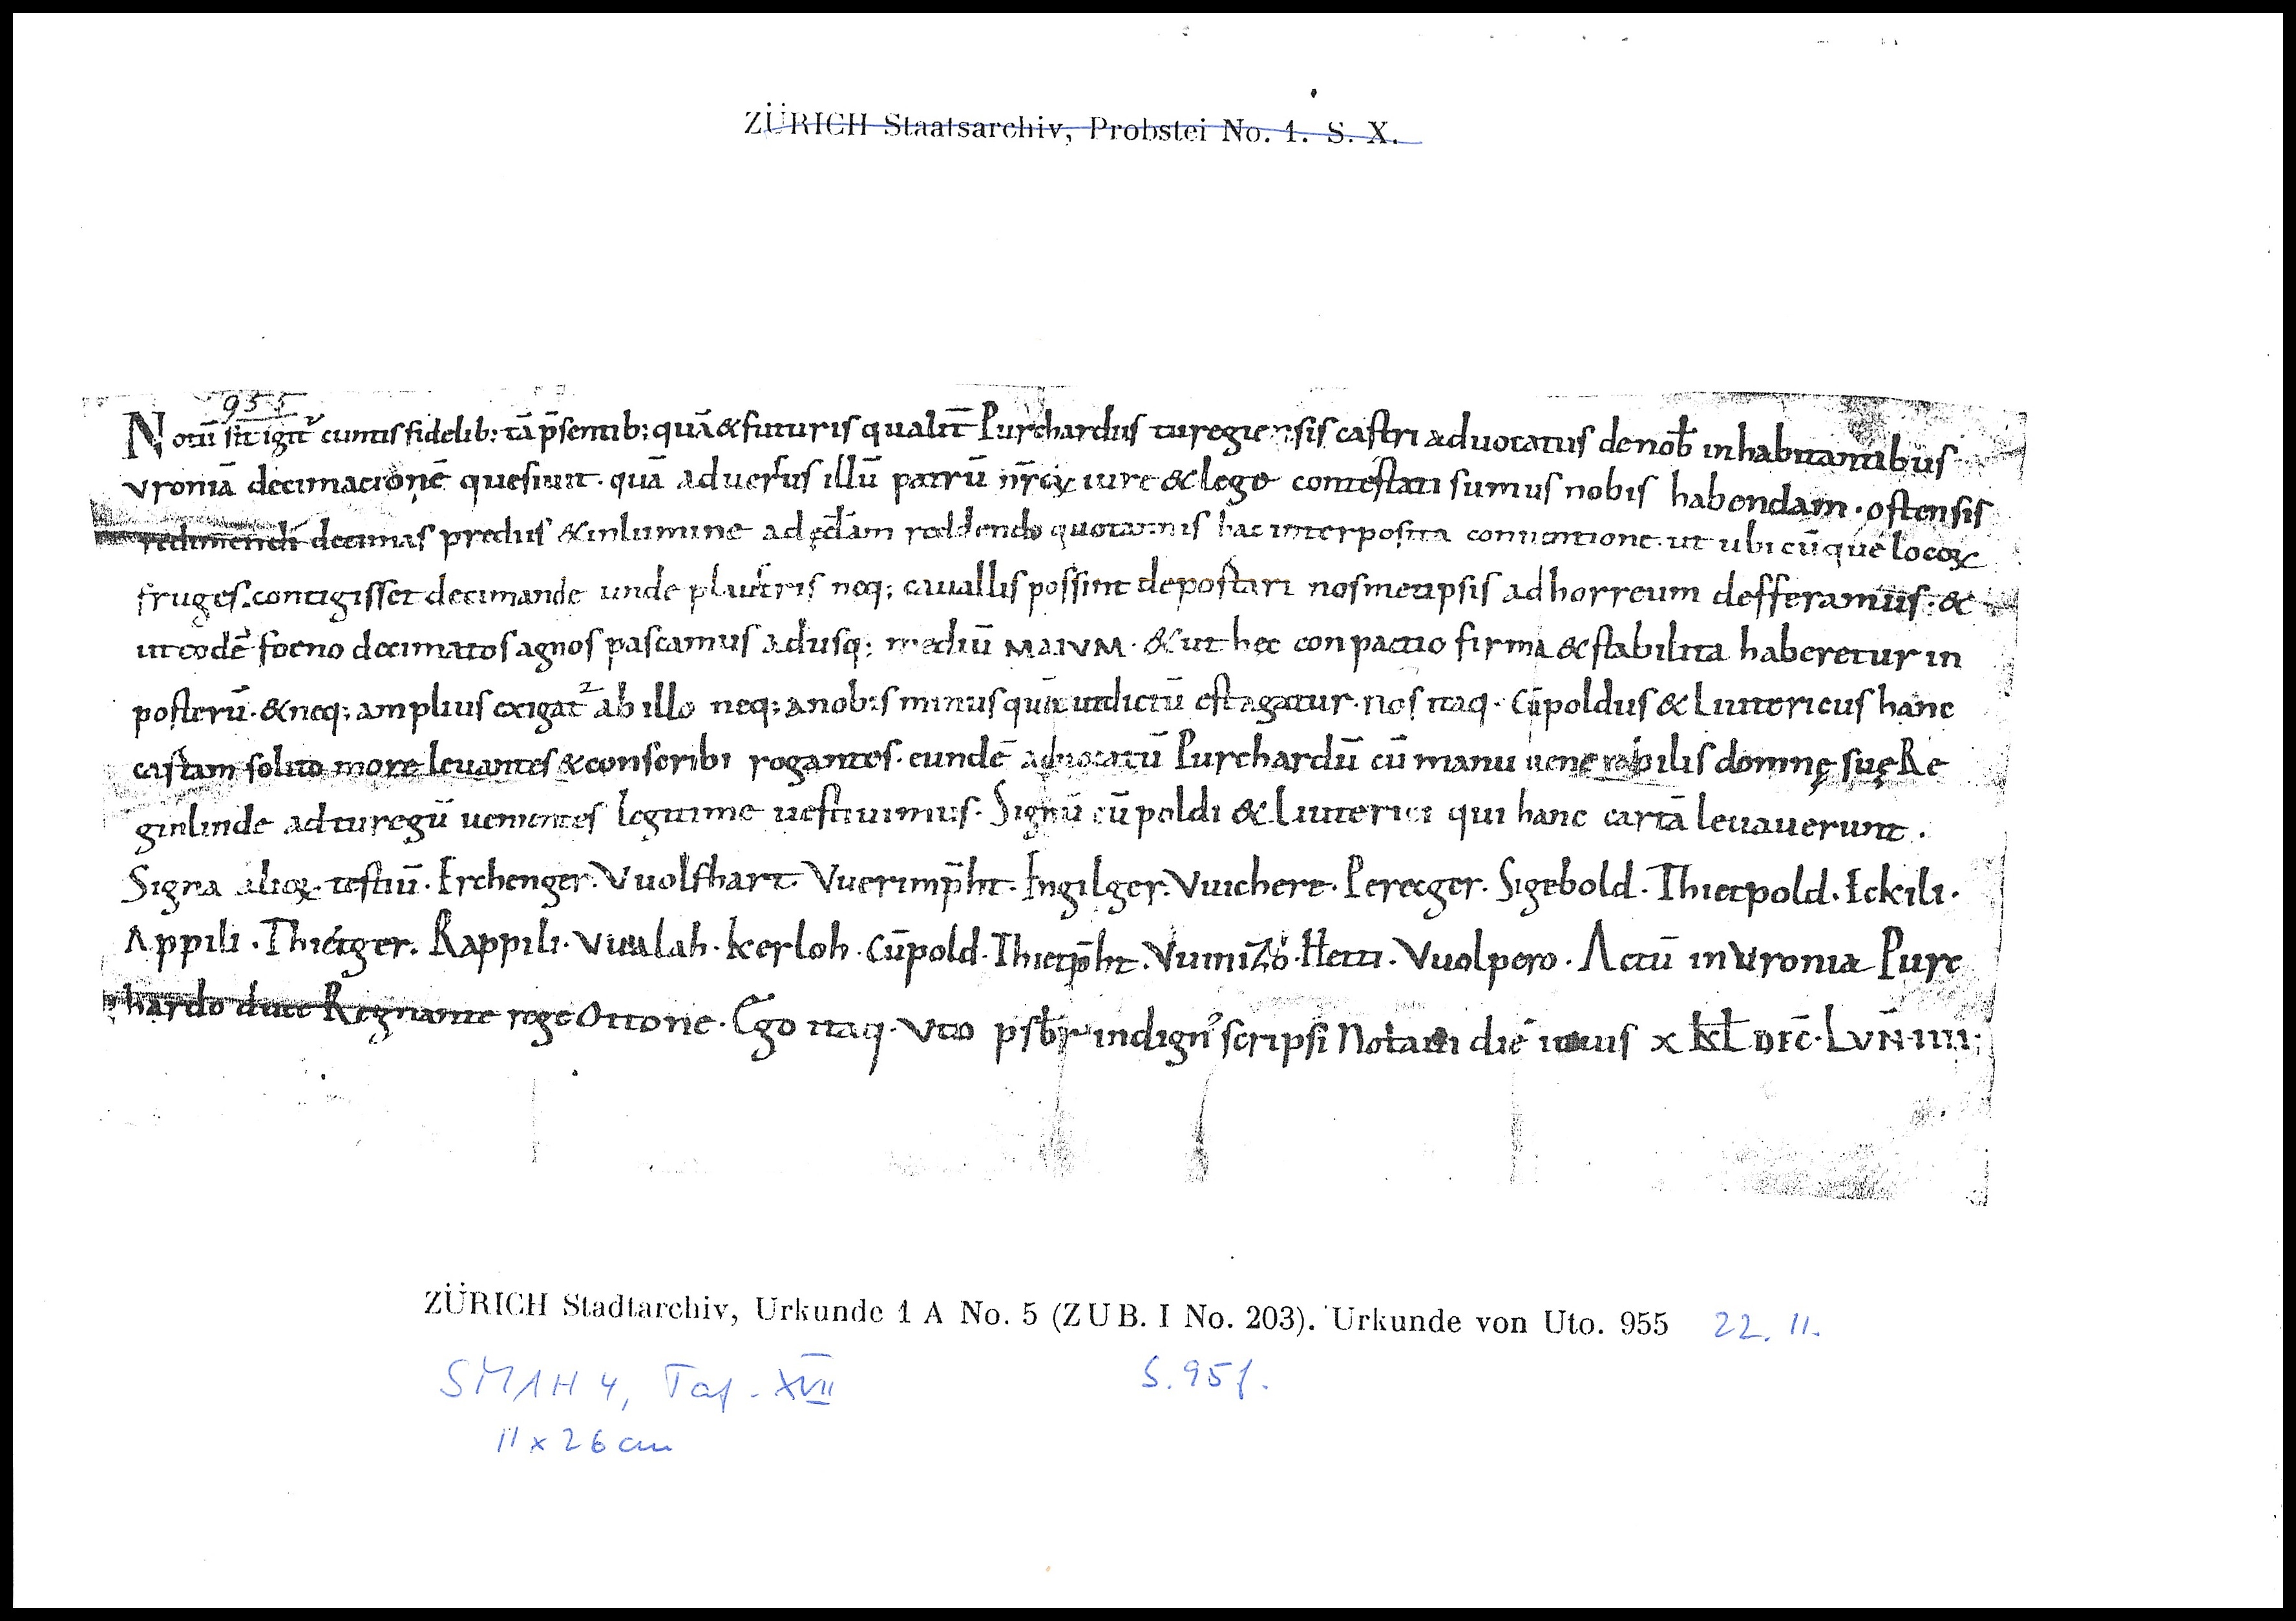 ZÜRICH Staatsarchiv, Probstei No. 1. S. X.
955
Notū sit igit᷑ cunctis fidelib; tā p̄sentib; quā & futuris qualit̄ Purchardus turegiensis castri aduocatus de nob̄ inhabitantibus
vroniā decimacionē quesiuit · quā aduersus illū patrū n̄roꝝ iure & lege contestati sumus nobis habendam · ostensis
redimendi decimas prediis & in lumine ad ęcl̄am reddendo quotannis hac interposita conuentione · ut ubicūque locoꝝ
fruges contigisset decimande unde plaustris neq; cauallis possint depostari nosmetipsis ad horreum defferamus · &
ut eodē foeno decimatos agnos pascamus adusq; mediū MAIVM · & ut hec conpactio firma & stabilita haberetur in
posterū · & neq; amplius exigat᷑ ab illo neq; a nobis minus quā ut dictū est agatur · nos itaq · Cūpoldus & Liutericus hanc
castam solito more leuantes & conscribi rogantes · eundē aduocatū Purchardū cū manu uenerabilis domnę suę Re
ginlinde ad turegū uenientes legitime uestiuimus · Signū cūpoldi & Liuterici qui hanc cartā leuauerunt ·
Signa alioꝝ testiū · Erchenger · Vuolfhart · Vuerimp̄ht · Engilger · Vuichere · Perecger · Sigebold · Thietpold · Eckili ·
Appili · Thietger · Rappili · Vualah · Kerloh · Cūpold · Thietp̄ht · Vuinizo · Hetti · Vuolpero · Actū in Vronia Purc
hardo duce Regnante rege Ottone · Ego itaq · Vto psb̄r indignꝰ scripsi Notaui diē x kł DEC̄ · LVN̄ · IIII ;
ZÜRICH Stadtarchiv, Urkunde 1 A No. 5 (ZUB. I No. 203). Urkunde von Uto. 955 22. 11.
SMAH 4, Taf. XVII S. 95f.
11 x 26 cm